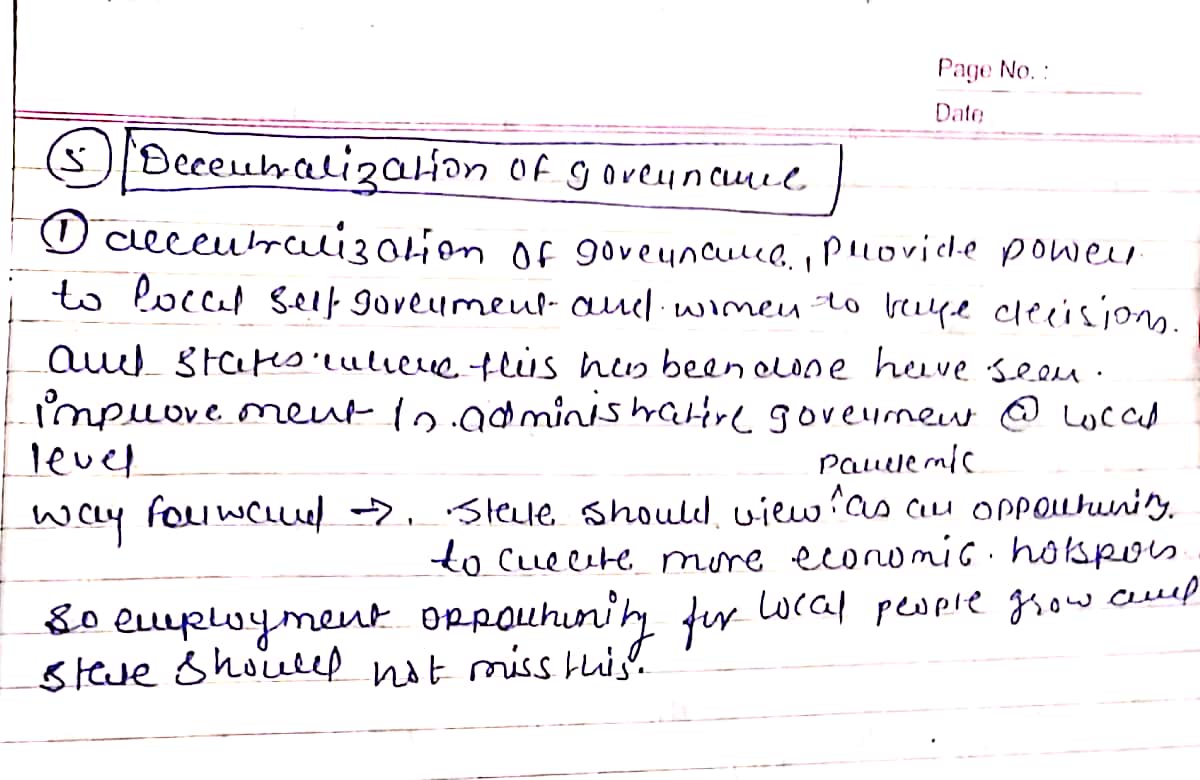 Page No. :
Date
⑤ Decentralization of governance
① decentralization of governance, provide power
to local self goverment and women to take decisions.
and states where this has been done have seen
improvement In administrative goverment @ local
level
pandemic
way forward → state should view ^ as an opportunity
to create more economic hotspots
so employment opportunity for local people grow and
state should not miss this.